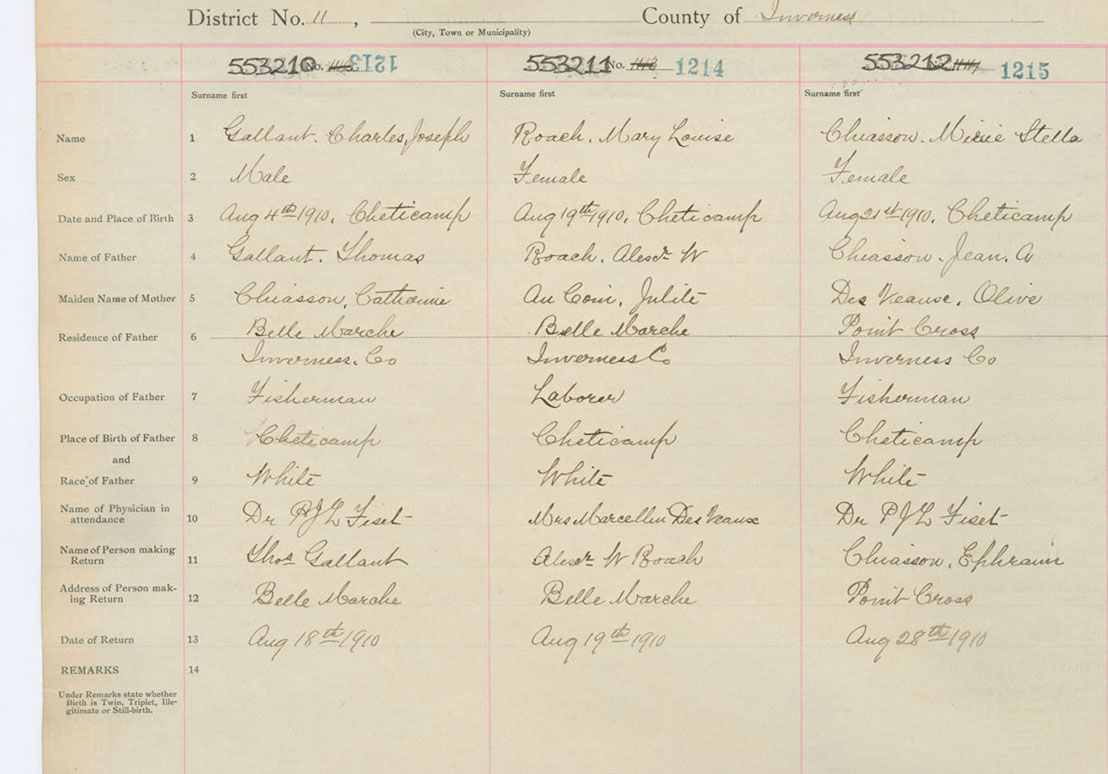 District No. 11, County of Inverness
(City, Town or Municipality)
553210 No. 1213 553211 No. 1214 553212 1215
Surname first Surname first Surname first
Name 1 Gallant. Charles, Joseph Roach. Mary Louise Chiasson. Stella
Sex 2 Male Female Female
Date and Place of Birth 3 Aug 4th 1910. Cheticamp Aug 19th 1910. Cheticamp Aug 21st 1910. Cheticamp
Name of Father 4 Gallant. Thomas Roach. Alexr W Chiasson. Jean. A
Maiden Name of Mother 5 Chiasson, Catherine Au Coin, Julite Des Veause, Olive
Residence of Father 6 Belle Marche Belle Marche Point Cross
Inverness. Co Inverness Co Inverness Co
Occupation of Father 7 Fisherman Laborer Fisherman
Place of Birth of Father 8 Cheticamp Cheticamp Cheticamp
and
Race of Father 9 White White White
Name of Physician in
attendance 10 Dr PJL Fiset Mrs Marcellin Des Veaux Dr PJL Fiset
Name of Person making
Return 11 Thos Gallant Alexr W Roach Chiasson, Ephraim
Address of Person mak-
ing Return 12 Belle Marche Belle Marche Point Cross
Date of Return 13 Aug 18th 1910 Aug 19th 1910 Aug 28th 1910
REMARKS 14
Under Remarks state whether
Birth is Twin, Triplet, Ille-
gitimate or Still-birth.